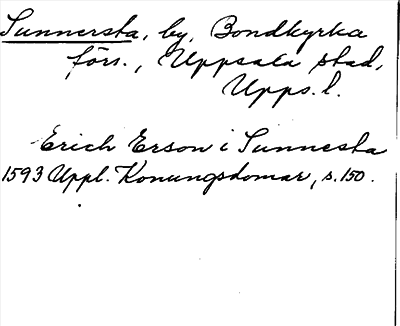 Sunnersta, by, Bondkyrka
förs., Uppsala stad,
Upps.l.
Erich Erson i Sunnesta
1593 Uppl. Konungsdomar, s. 150.